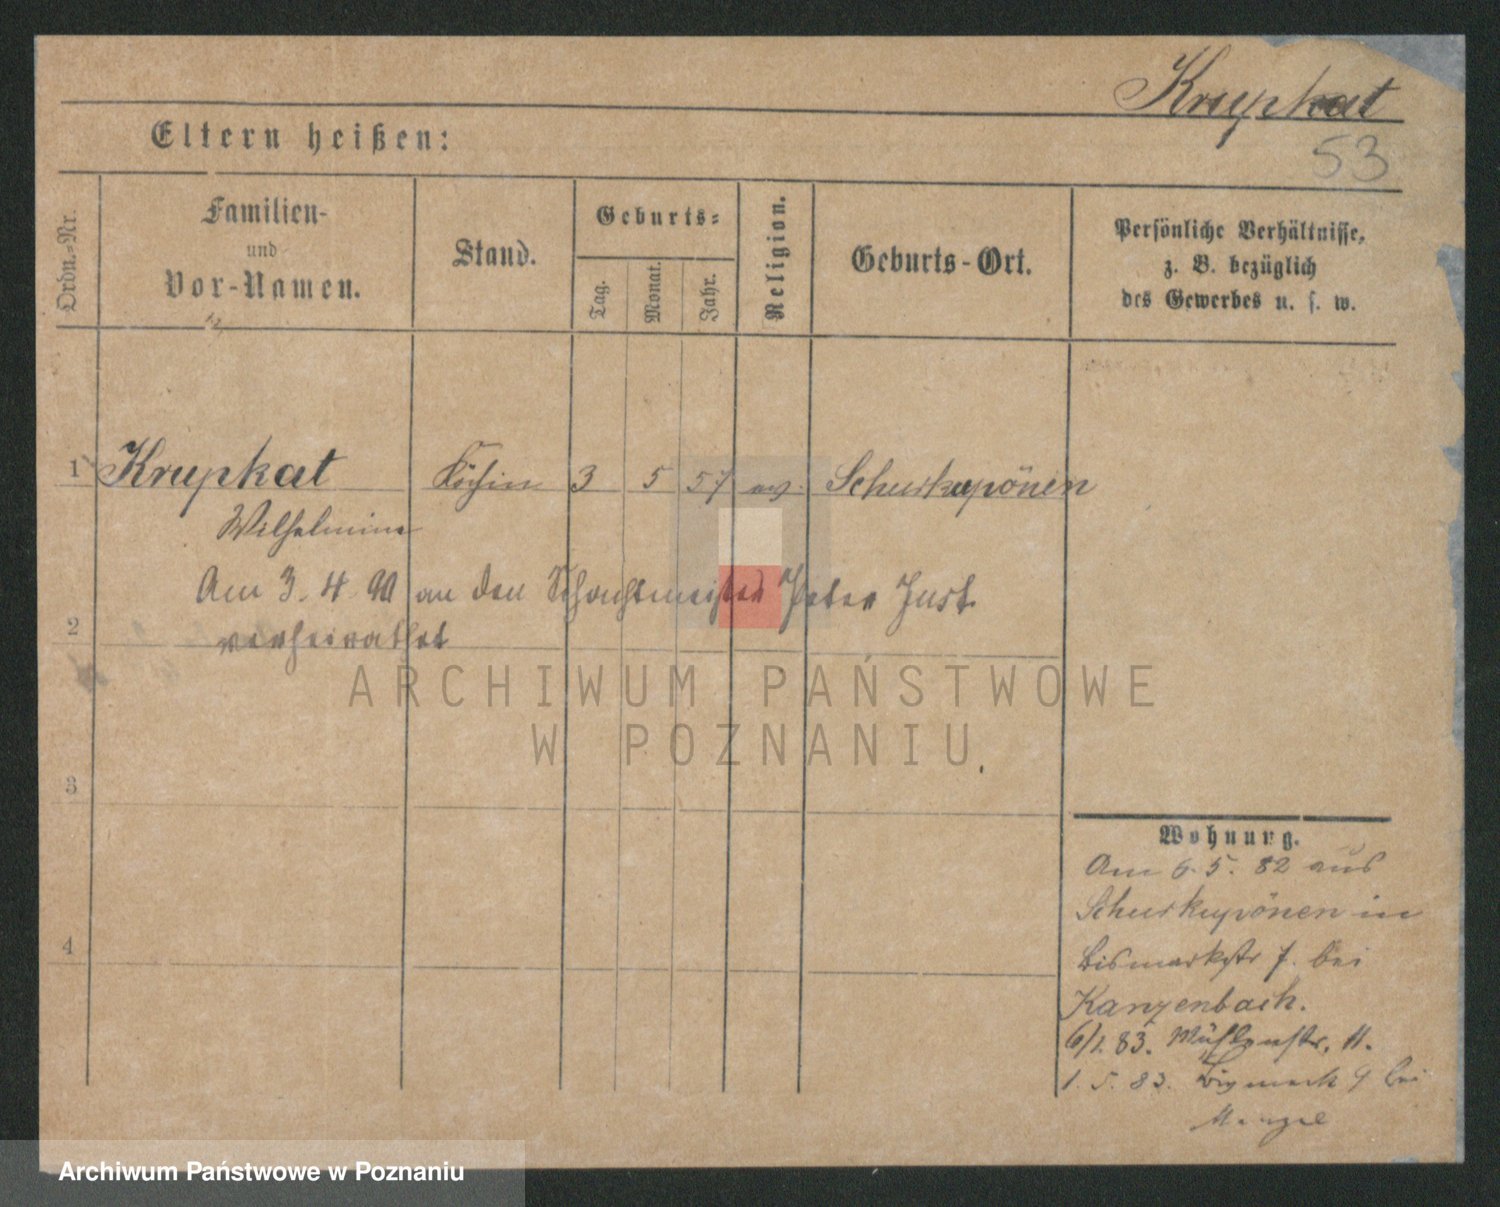 Krupkat
53
Eltern heißen:
Ordn.-Nr.
Familien-
und
Vor-Namen.
Stand.
Geburts-
Tag.
Monat.
Jahr.
Religion.
Geburts-Ort.
Persönliche Verhältnisse,
z. B. bezüglich
des Gewerbes u. s. w.
1 Krupkat Köchin 3 5 57 ev. Schurkupönen
Wilhelmine
Am 3. 4. 90 an den Schachtmeister Peter Just
2 verheirathet
ARCHIWUM PAŃSTWOWE
W POZNANIU
3
4
Wohnung.
Am 6. 5. 82 aus
Schurkupönen in
Bismarkstr 7. bei
Kanzenbach.
6/1 83. Mühlenstr. 11.
1. 5. 83. Bismark 9 bei
Menzel
Archiwum Państwowe w Poznaniu